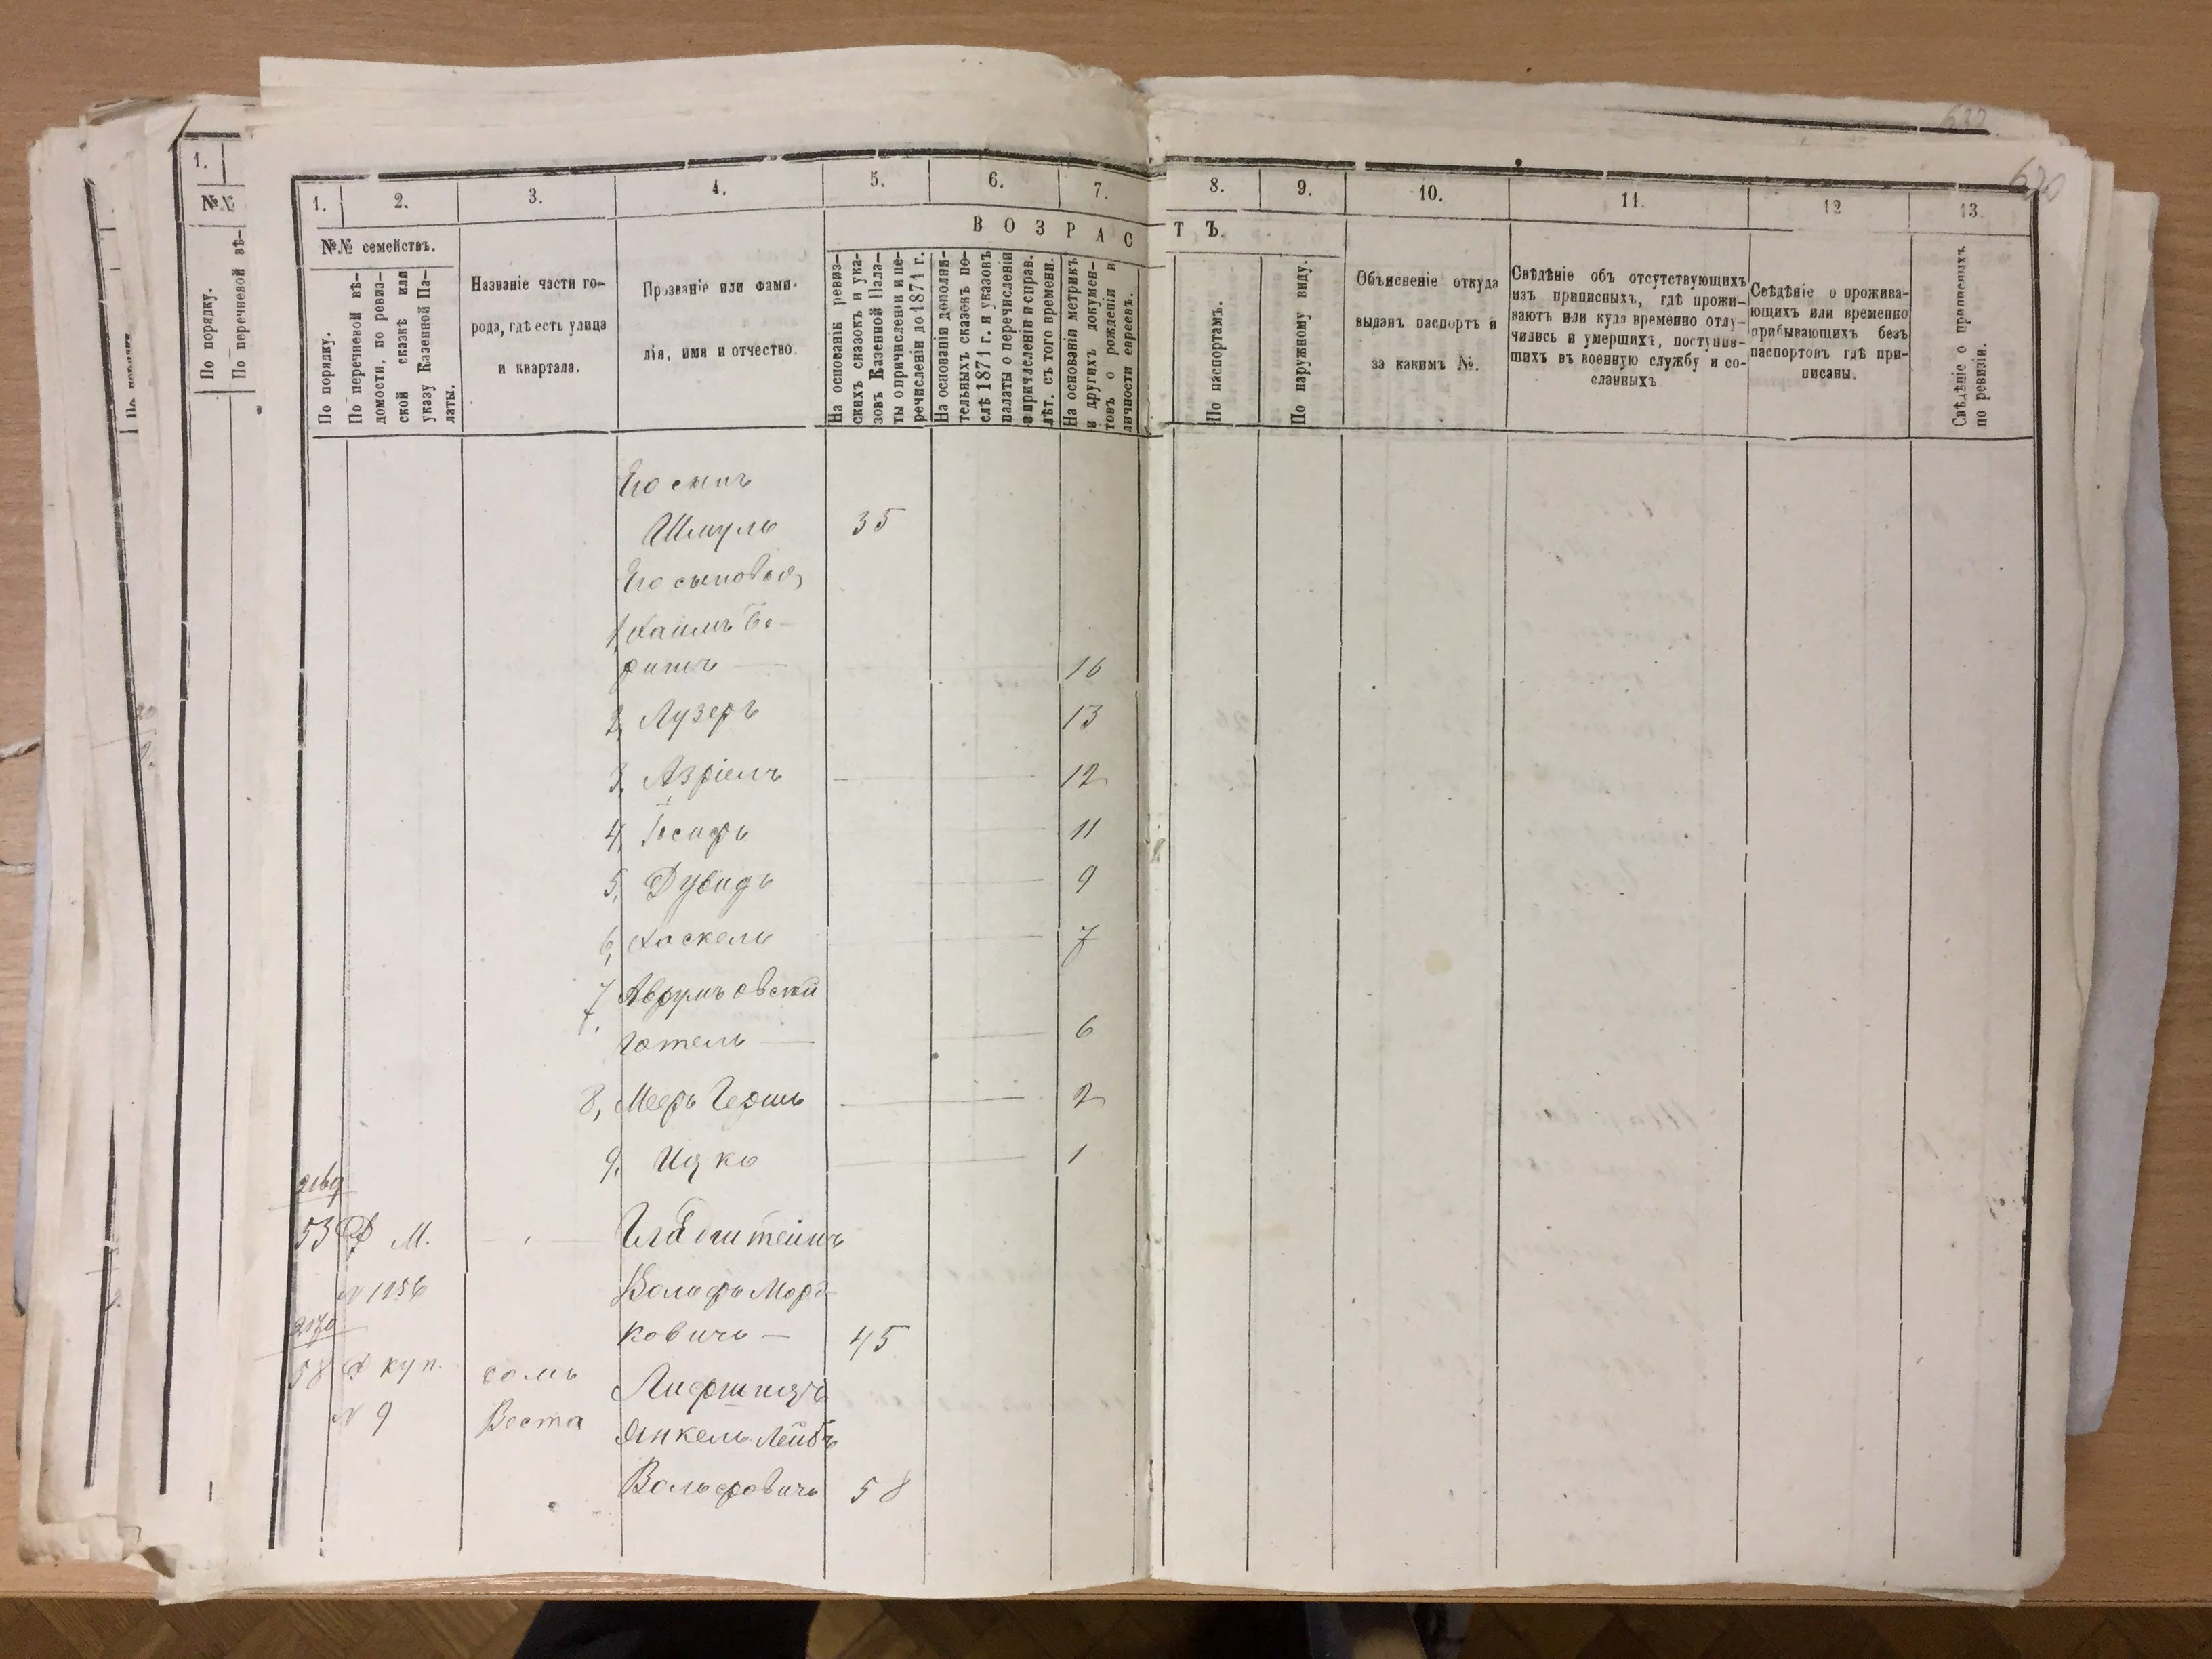 632
620
1.
№№
По порядку.
По перечневой вѣ-
1. 2. 3. 4. 5. 6. 7. 8. 9. 10. 11. 12 13.
ВОЗРАСТЪ.
№№ семействъ.
По порядку.
По перечневой вѣ-
домости, по ревиз-
ской сказкѣ или
указу Казенной Па-
латы.
Названіе части го-
рода, гдѣ есть улица
и квартала.
Прозваніе или фами-
лія, имя и отчество.
На основаніи ревиз-
скихъ сказокъ и ука-
зовъ Казенной Пала-
ты о причисленіи и пе-
речисленіи до 1871 г.
На основаніи дополни-
тельныхъ сказокъ по-
слѣ 1871 г. и указовъ
палаты о перечисленіи
и причисленіи справ.
лѣт. съ того времени.
На основаніи метрикъ
и другихъ докумен-
товъ о рожденіи и
личности евреевъ.
По паспортамъ.
По наружному виду.
Объясненіе откуда
выданъ паспортъ и
за какимъ №.
Свѣдѣніе объ отсутствующихъ
изъ приписныхъ, гдѣ прожи-
ваютъ или куда временно отлу-
чились и умершихъ, поступив-
шихъ въ военную службу и со-
сланныхъ.
Свѣдѣніе о прожива-
ющихъ или временно
прибывающихъ безъ
паспортовъ гдѣ при-
писаны.
Свѣдѣніе о приписныхъ
по ревизіи.
Его сынъ
Шмуль 35
Его сыновья,
1, Хаимъ Бе-
ришъ — 16
2, Лузеръ 13
3, Азріель — 12
4, Іосифъ — 11
5, Дувидъ — 9
6, Хаскель — 7
7, Аврумъ Овсѣй
Готель — 6
8, Мееръ Гершь — 2
9, Ицко — 1
2169
53 Ф М. — Гладштейнъ
№ 1256 ВольфъМорд-
ковичъ — 45
2170
58 Ф куп. домъ Лифшицъ
№ 9 Веста Янкель Лейбъ
Вольфовичъ 58